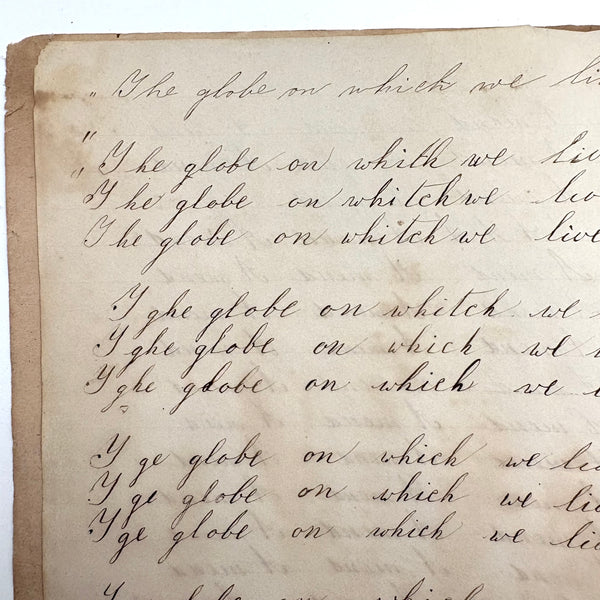 " The globe on which we li
" The globe on whith we liv
The globe on whitch we liv
The globe on whitch we live
Yghe globe on whitch we
Yghe globe on which we
Yghe globe on which we
Yge globe on which we liv
Yge globe on which we liv
Yge globe on which we liv
globe on which